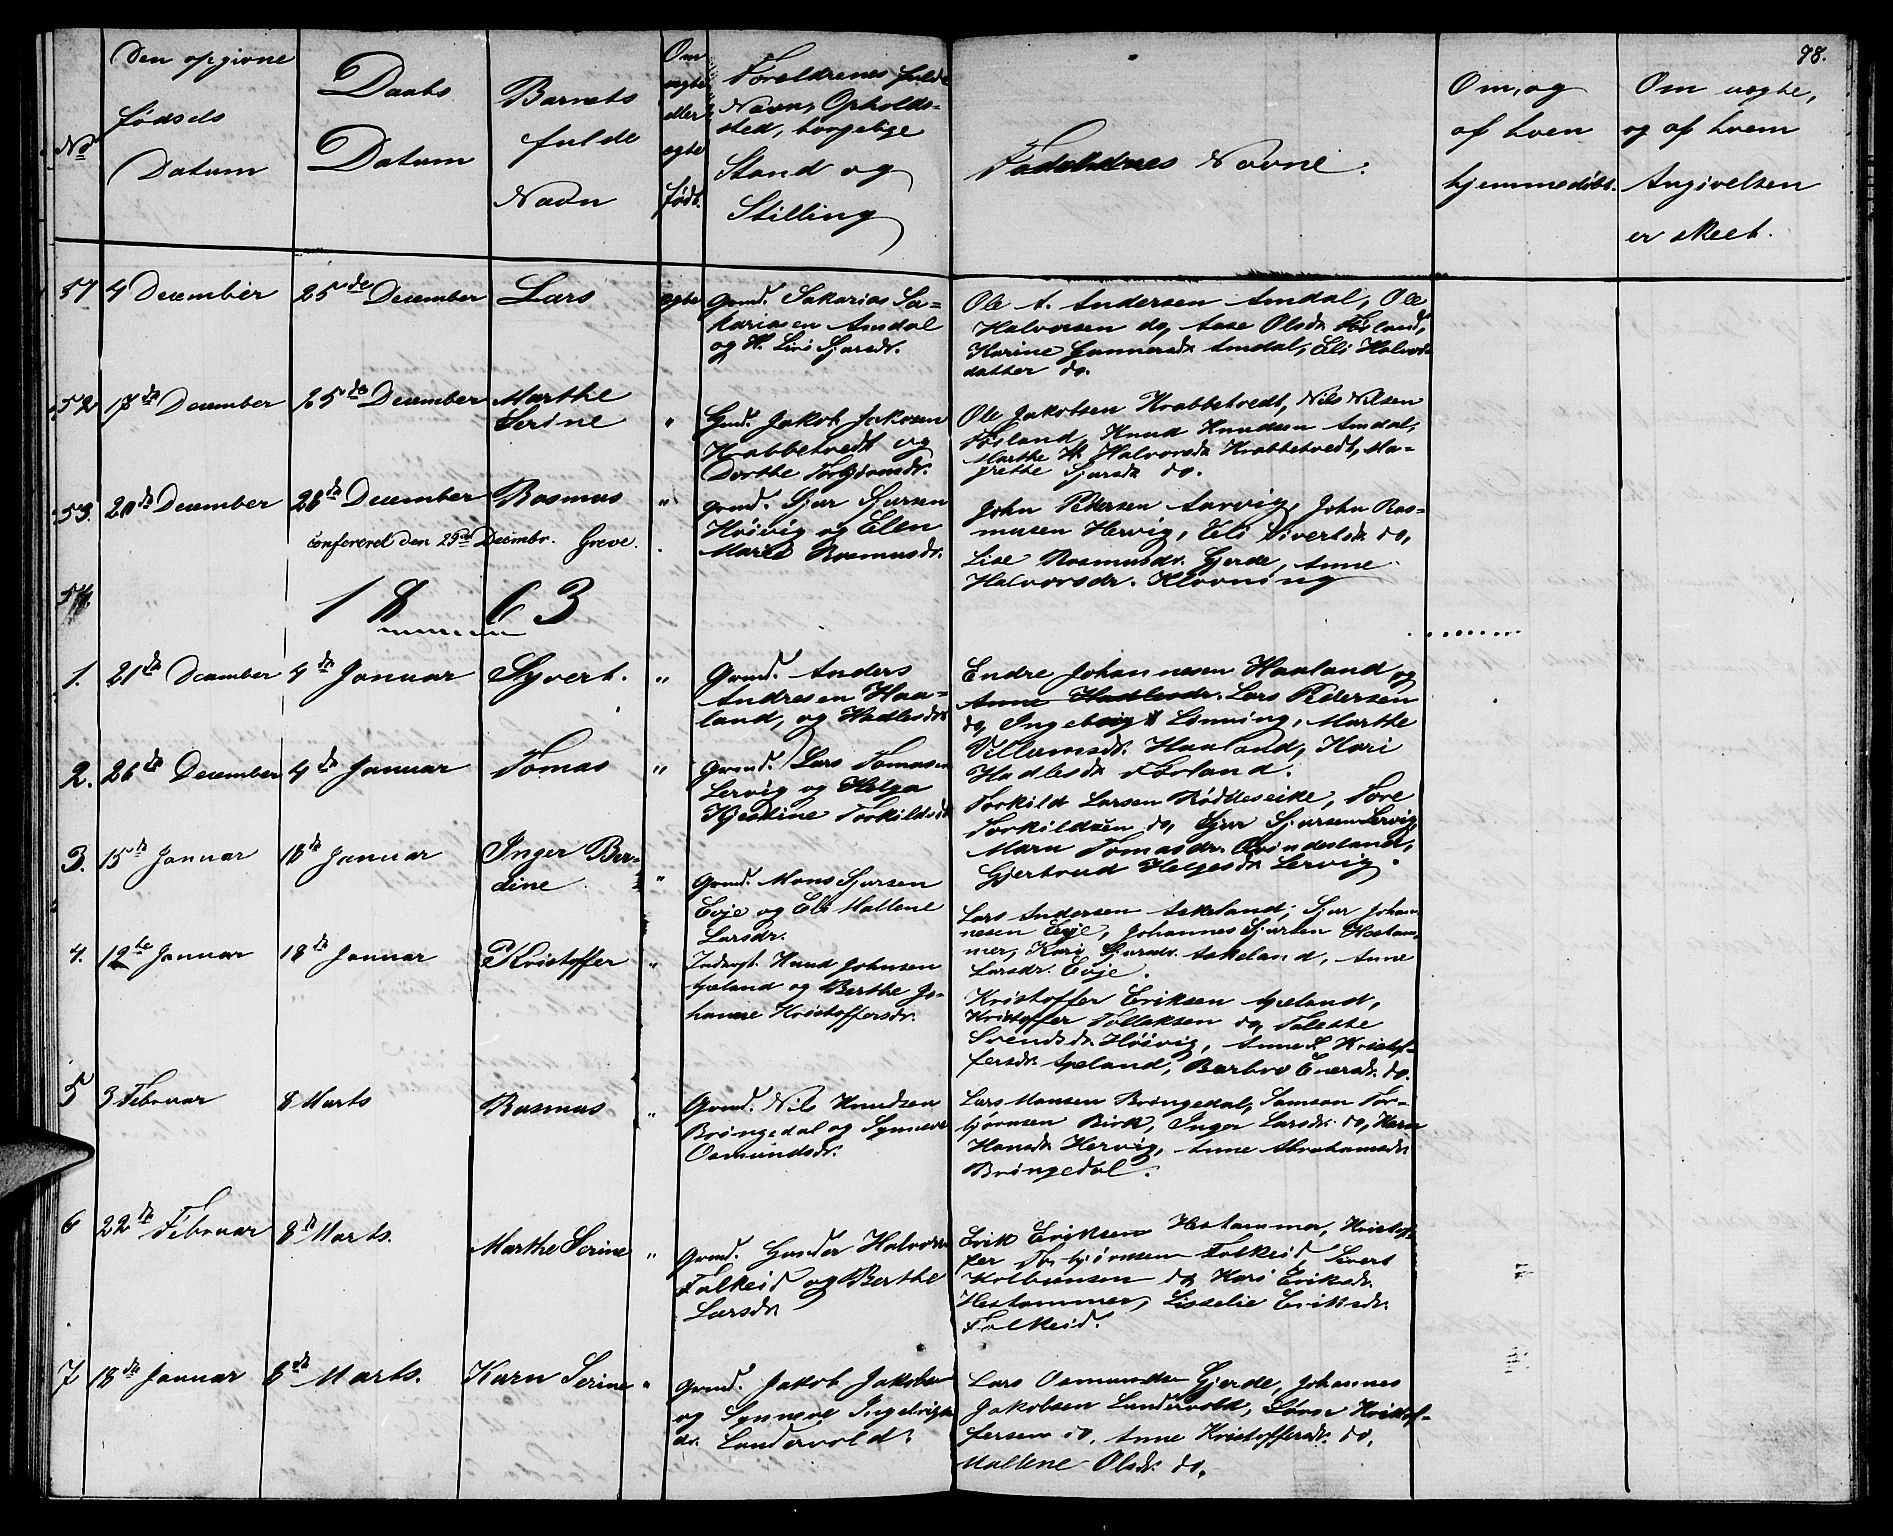 98.
No
Den opgivne
fødsels
Datum
Daabs
Datum
Barnets
fulde
Navn
Om
uegte
eller
egte
født.
Foreldrenes fulde
Navn, Opholds-
sted, borgelige
Stand og
Stilling
Fadderenes Navne.
Om, og
af hven
hjemmedøbt.
Om uegte,
og af hvem
Angivelsen
er skeet.
51 4 December 25de December Lars egte
Grmd. Sakarias Sa-
kariasen Amdal
og H. Livi Sjursdr.
Ole A. Andersen Amdal, Ole
Halvorsen do, Aase Olsdr. Føsland,
Karine Gunnersdr Amdal, Eli Halvors
datter do.
52 17de December 25de December Marthe
Serine "
Grmd. Jakob Jakosen
Krabbetvedt og
Dorthe Torbjørnsdr.
Ole Jakobsen Krabbetvedt, Nils Nilsen
Føsland, Knud Knudsen Amdal,
Marthe H. Halvorsdr Krabbetvedt, Ma-
grethe Sjursdr do.
53. 20de December 26de December Rasmus "
confereret den 29de Decembr. Greve.
Grmd. Sjur Sjursen
Høivig og Elen
Marte Rasmusdr.
John Petersen Aarvig, John Ras-
musen Hervig, Eli Sivertsdr do,
Lise Rasmusdr. Gjerde, Anne
Halvorsdr. Klovning
54.
1863
1. 21de December 4de Januar Syvert. "
Grmd. Anders
Andresen Haa-
land, og Hadlesdr.
Endre Johannesen Haaland og
Anne Hadlesdr. Lars Petersen
do, Ingebrig Lønning, Marthe
Villumsdr. Haaland, Kari
Hadlesdr Førland.
2. 26de December 4de Januar Tomas "
Grmd. Lars Tomasen
Lervig og Helga
Kjestine Torkildsdr
Torkild Larsen Røddeseike, Tore
Torkildsen do, Sjur Sjursen Lervig,
Marn Tomasdr. Øvindesland,
Gjertrud Helgesdr Lervig.
3. 15de Januar 18de Januar Inger Ber-
dine "
Grmd. Mons Sjursen
Evje og Eli Mallene
Larsdr.
Lars Andersen Askeland, Sjur Johan-
nesen Evje, Johannes Sjursen Hestam-
mer, Kari Sjursdr. Askeland, Anne
Larsdr. Evje.
4. 12te Januar 18de Januar Kristoffer "
Indergt. Knud Johnsen
Apeland og Berthe Jo-
hanne Kristoffersdr.
Kristoffer Eriksen Apeland,
Kristoffer Tollaksen do, Taleste
Svendsdr. Høivig, Anne L Kristof-
fersdr. Apeland, Barbro Enersdr. do.
5 3 Februar 8 Marts Rasmus "
Grmd. Nils Knudsen
Bringedal og Synneve
Osmundsdr.
Lars Monsen Bringedal, Samson Tor-
bjørnsen Birk, Inger Larsdr. do, Karn
Hansdr Hervig, Anne Abrahamsdr
Bringedal.
6 22de Februar 8de Marts. Marthe Serine "
Grmd. Gunder Halvorsen
Falkeid og Berthe
Larsdr
Erik Eriksen Hestammer, Kristof-
fer Torbjørnsen Falkeid, Sivert
Kolbensen do, Kari Eriksdr.
Hestammer, Lisselie Eriksdr.
Falkeid.
7 18de Januar 8de Marts. Karn Serine "
Grmd. Jakob Jakobsen
og Synneve Ingebrigts
dr. Landervold.
Lars Osmundsen Gjerde, Johannes
Jakobsen Landervold, Lars Kristof-
fersen do, Anne Kristoffersdr. do,
Mallene Olsdr. do.